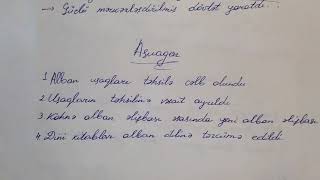 → Güclü mərkəzləşdirilmiş dövlət yaratdı.
Asuagen
1 Alban uşaqları təhsilə cəlb olundu
2 Uşaqların təhsilinə vəsait ayrıldı
3 Köhnə alban əlifbası əsasında yeni alban əlifbası
4 Dini kitablar alban dilinə tərcümə edildi